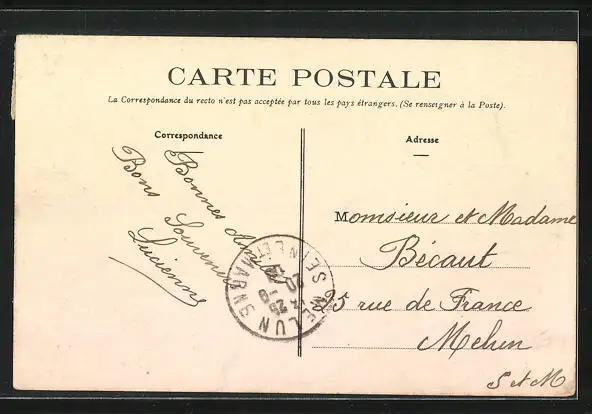 CARTE POSTALE
La Correspondance du recto n'est pas acceptée par tous les pays étrangers. (Se renseigner à la Poste).
Correspondance
Bonnes Amitiés
Bons Souvenirs
Lucienne
Adresse
Monsieur et Madame
Bécaut
25 rue de France
Melun
S et M
MELUN SEINE ET MARNE